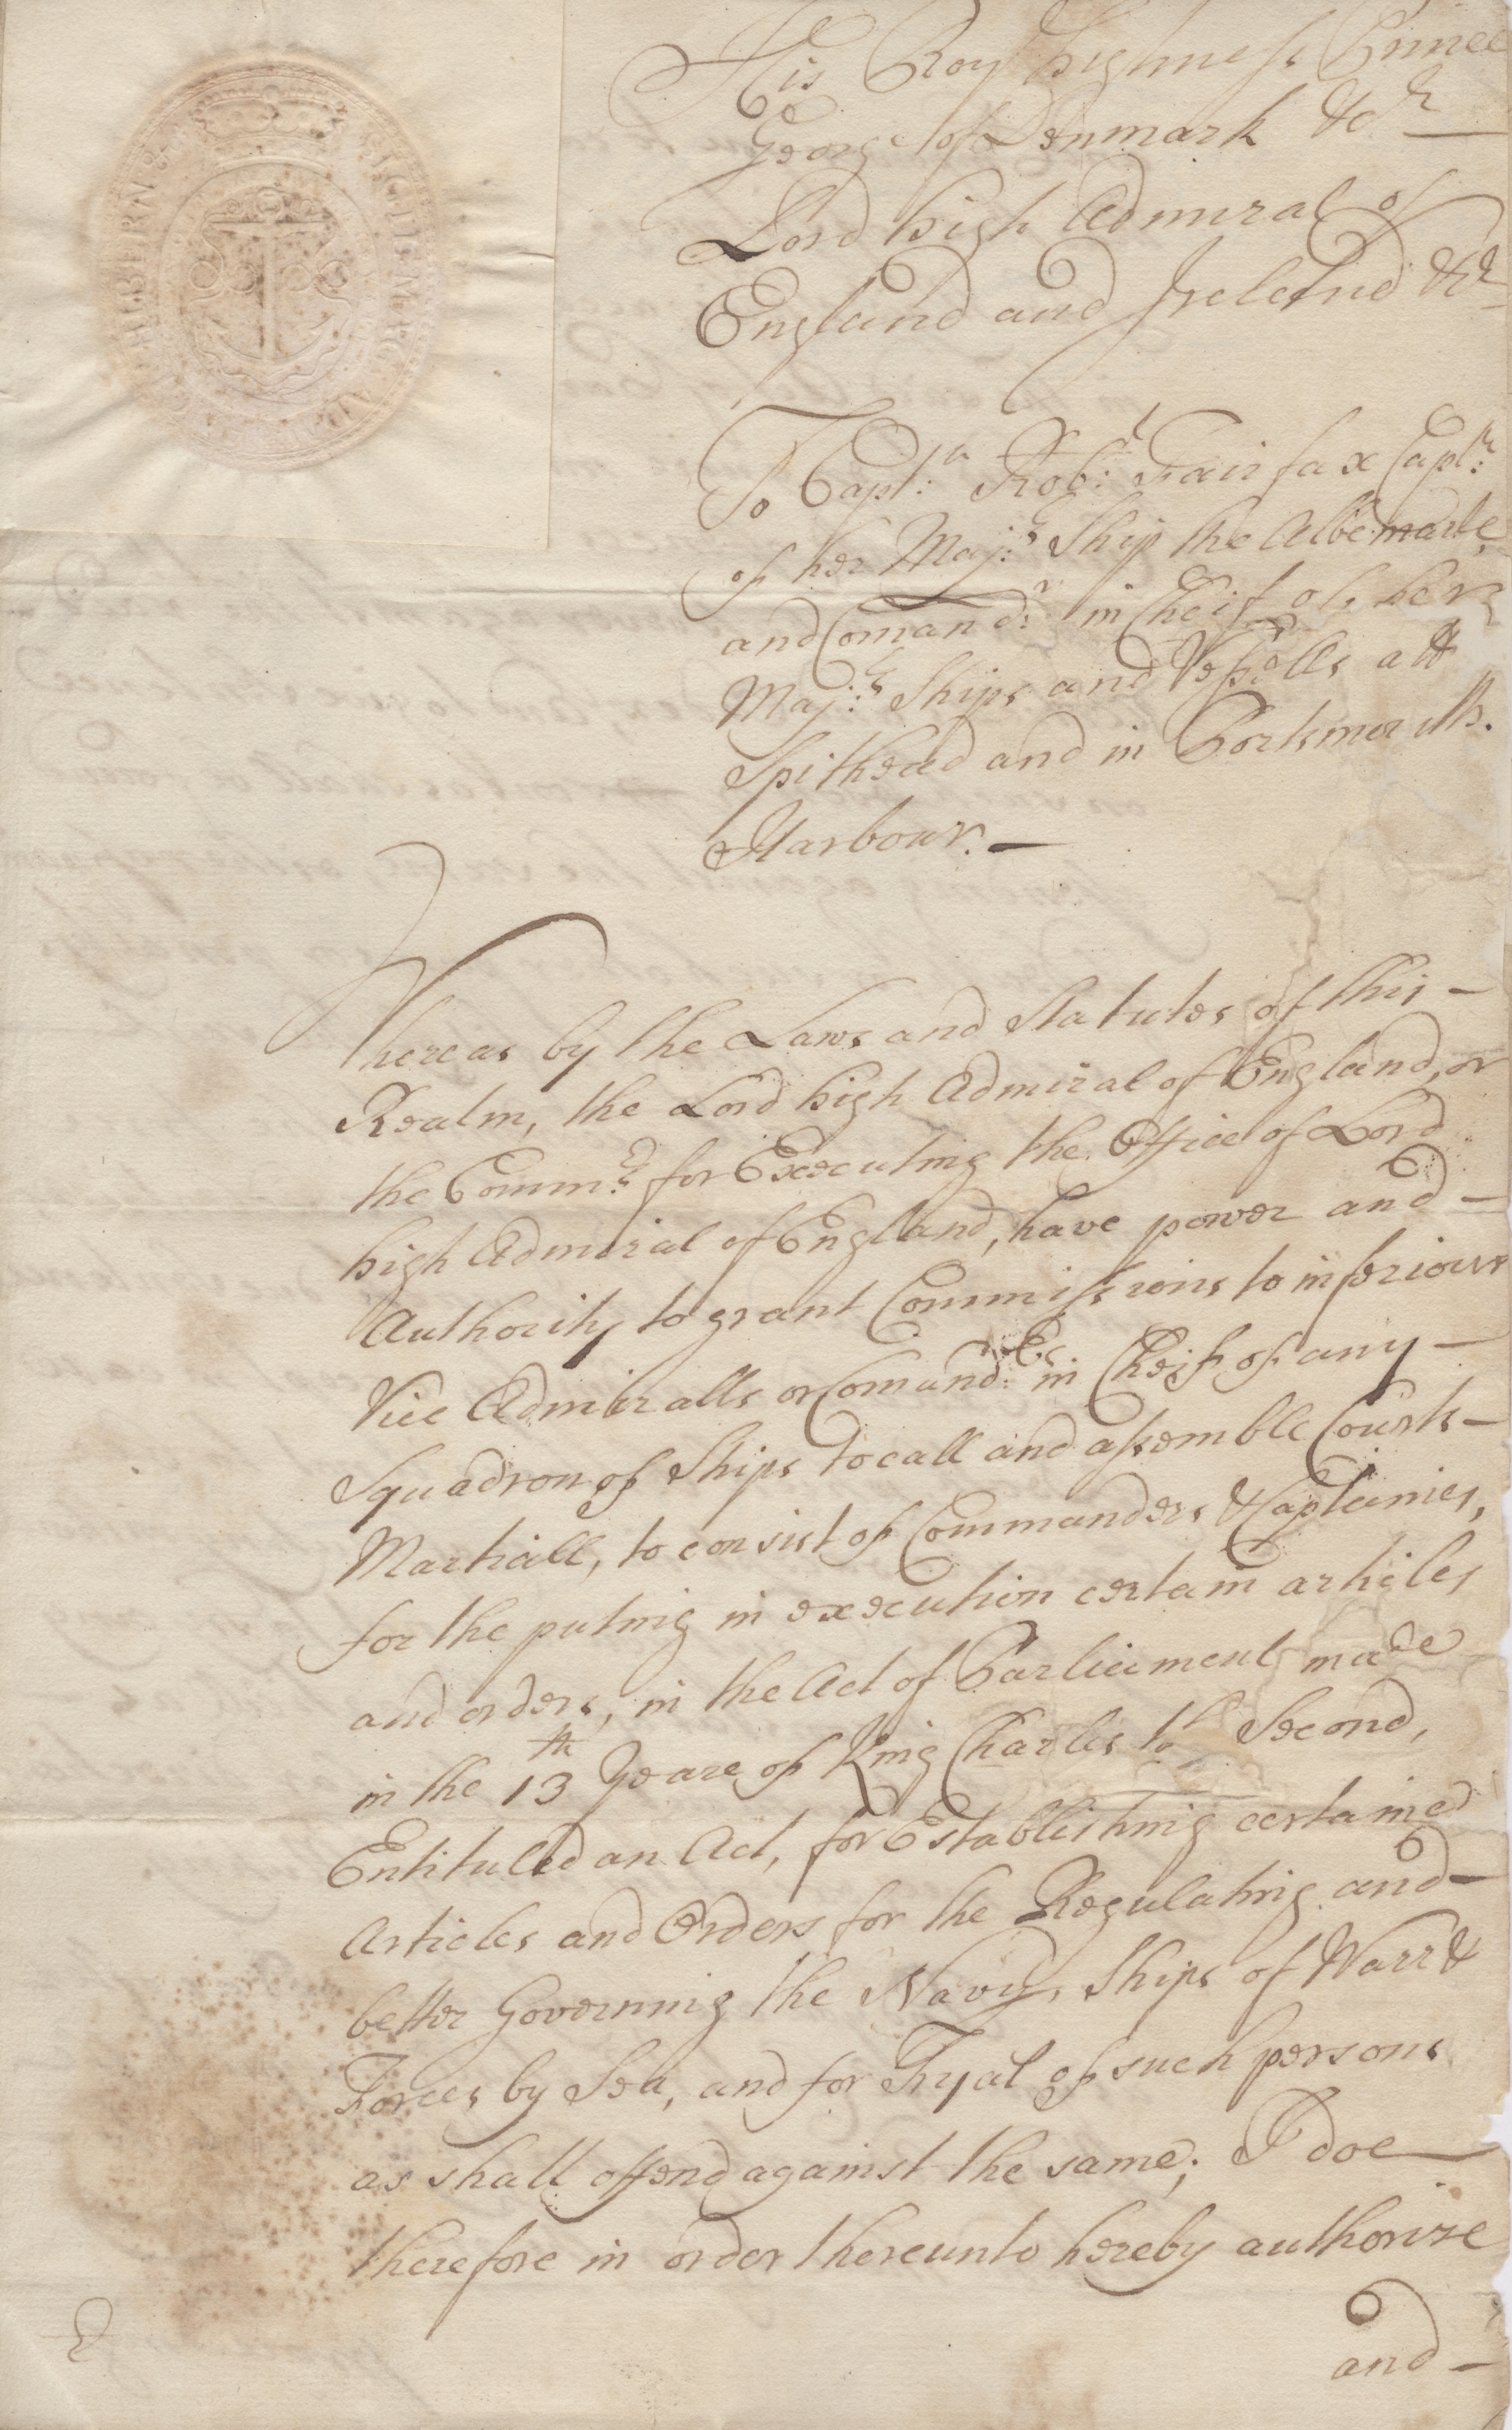 His Roy.ll highness Prince
George of Denmark &c.a
Lord high Admiral of
England and Ireland &c.a
To Capt:n Rob:t Fairfax Capt:n
of her Maj:s Ship the Albemarle
and Comand:r in Cheif of her
Maj:s Ships and Vessells att
Spithead and in Portsmouth
Harbour.
Whereas by the Laws and Statutes of this
Realm, the Lord high Admiral of England, or
the Comm:rs for Executing the Office of Lord
high Admiral of England, have power and
Authority to grant Commissions to inferiour
Vice Admiralls or Comand:rs in Cheif of any
Squadron of Ships to call and assemble Courts
Martiall, to consist of Commanders & Captaines,
for the puting in execution certain articles
and orders, in the Act of Parliament made
in the 13th Yeare of King Charles the Second,
Entituled an Act, for Establishing certaine
Articles and Orders for the Regulating and
better Governing the Navy, Ships of Warr &
Forces by Sea, and for Tryal of such persons
as shall offend against the same; I doe
therefore in order thereunto hereby authorize
and